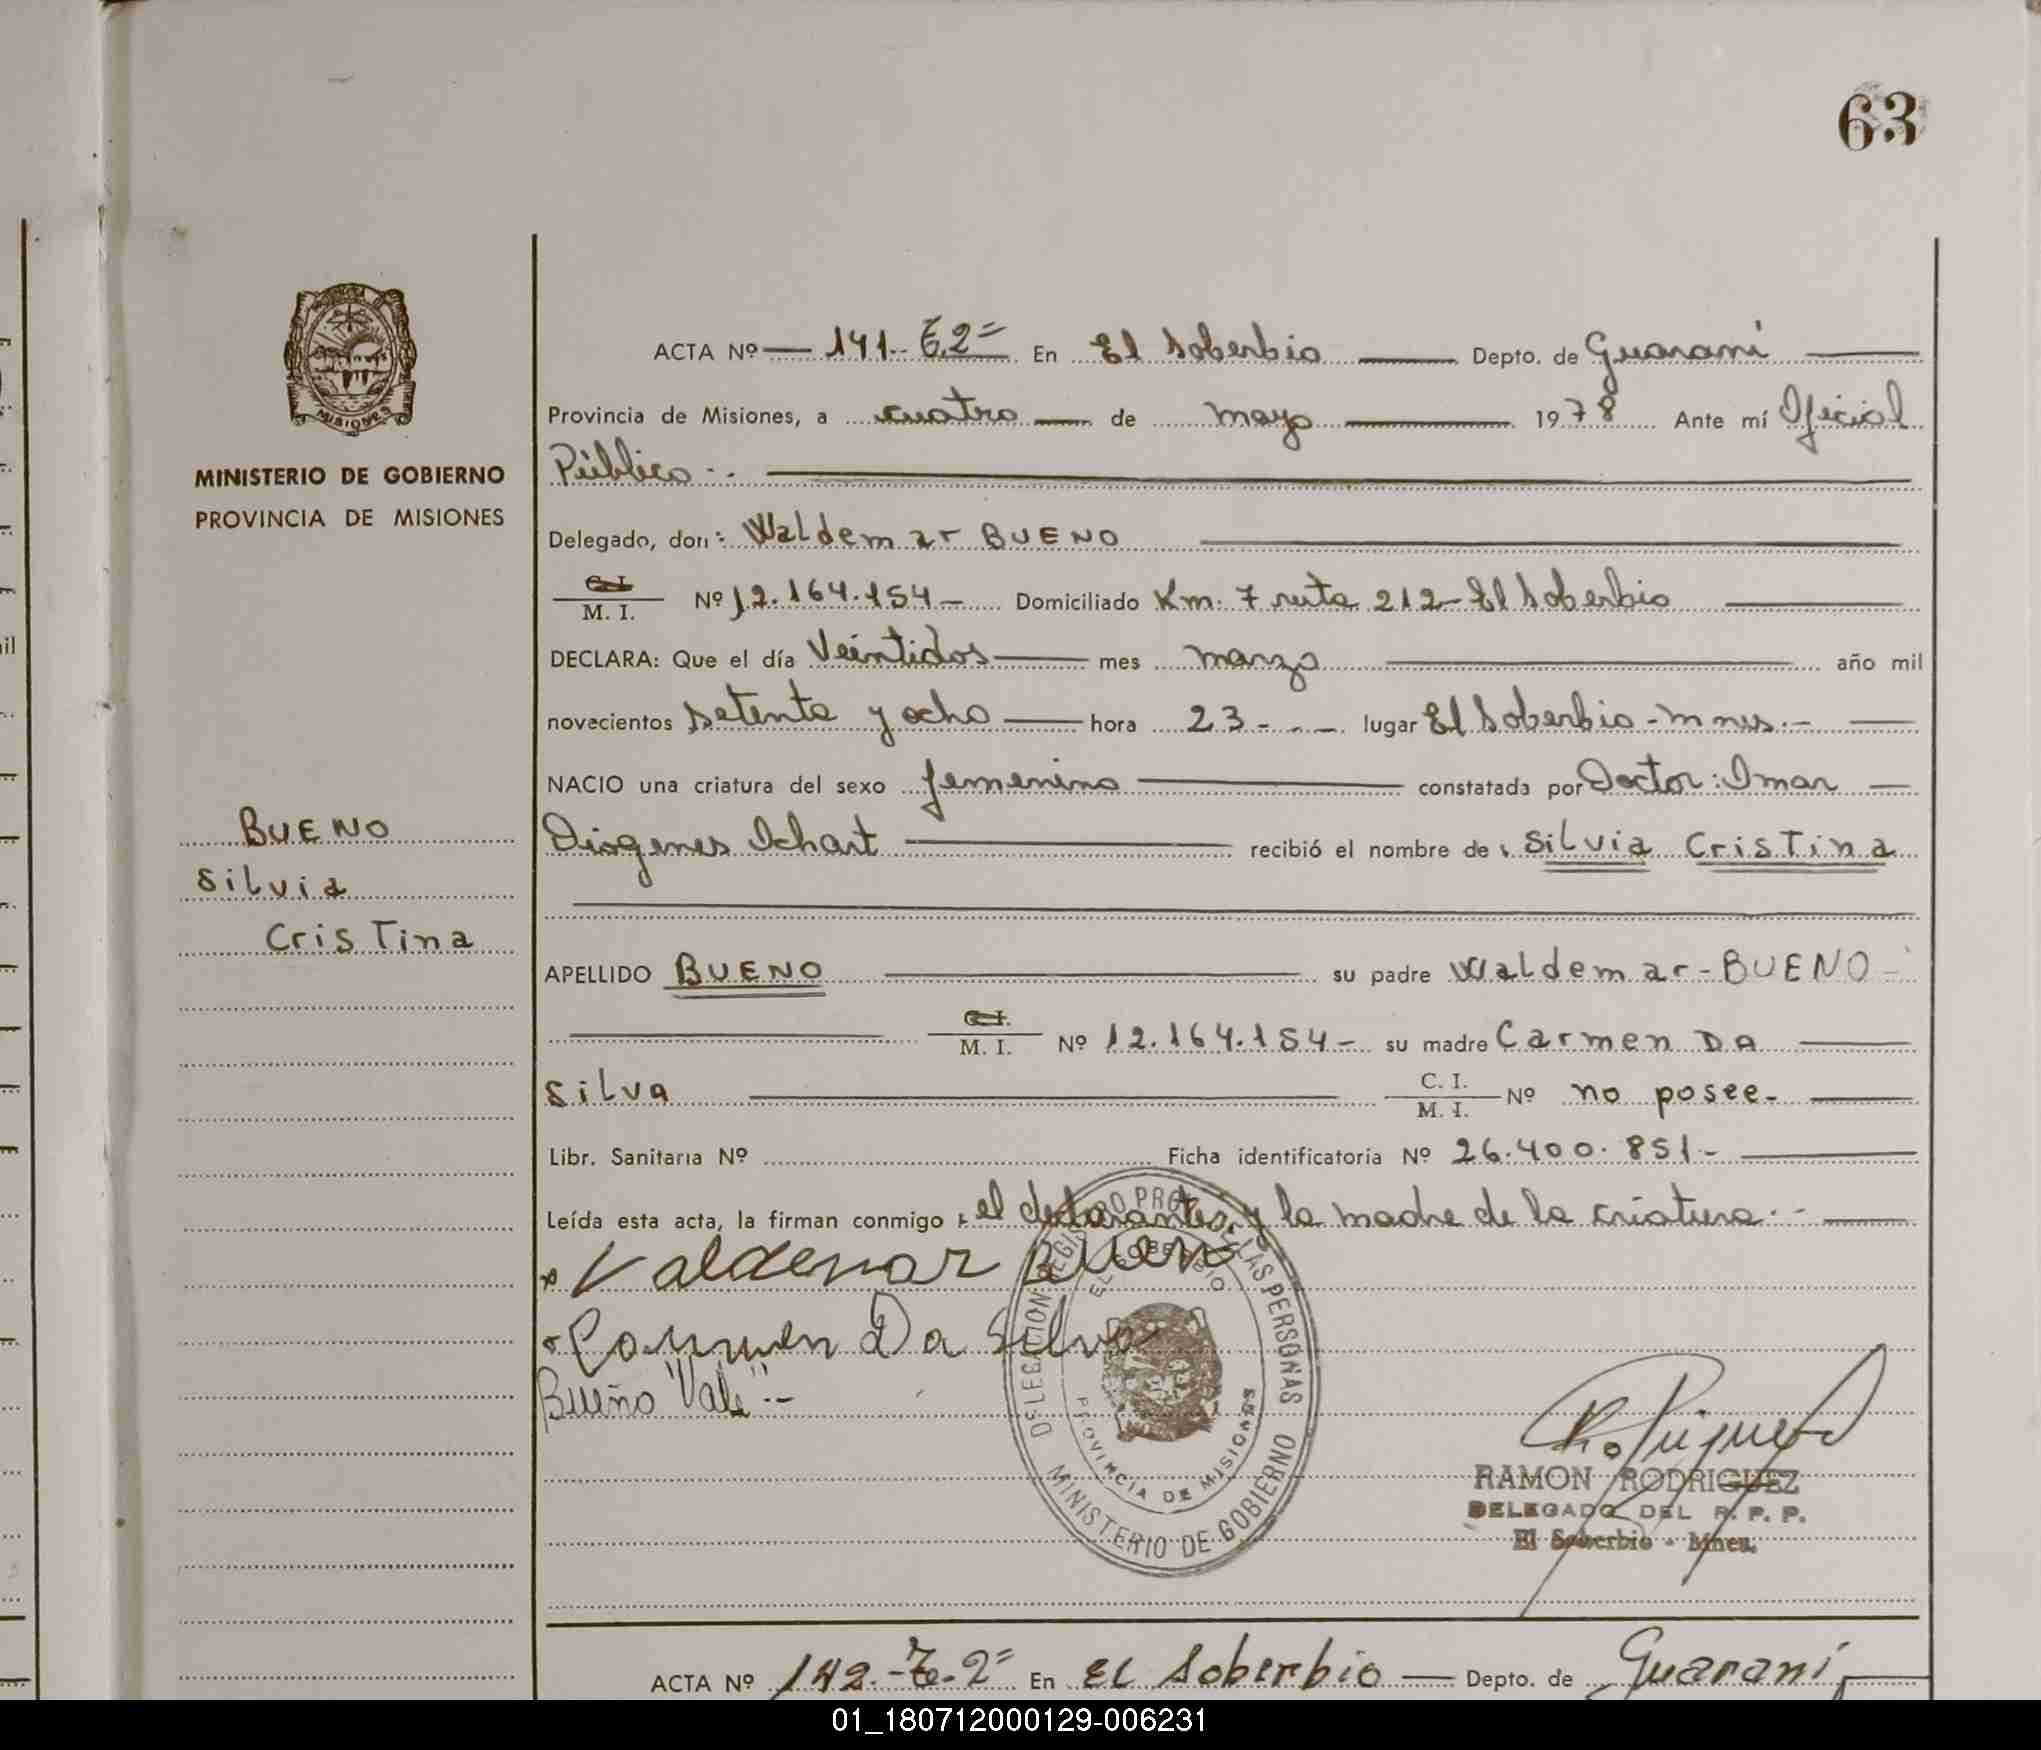 63
MISIONES
MINISTERIO DE GOBIERNO
PROVINCIA DE MISIONES
BUENO
Silvia
Cristina
ACTA Nº 141 - T.2= En El Soberbio Depto. de Guaraní
Provincia de Misiones, a cuatro de mayo 1978 Ante mí Oficial
Público -.
Delegado, don: Waldemar BUENO
C. I.
M. I. Nº 12.164.154 - Domiciliado Km. 7 ruta 212 - El Soberbio
DECLARA: Que el día Veintidos mes marzo año mil
novecientos setenta y ocho hora 23 - . - . lugar El Soberbio - Mnes. -
NACIO una criatura del sexo femenino constatada por Doctor: Omar
Diógenes Ichart recibió el nombre de: Silvia Cristina
APELLIDO BUENO su padre Waldemar - BUENO -
C. I.
M. I. Nº 12.164.154 - su madre Carmen DA
Silva C. I.
M. I. Nº no posee -
Libr. Sanitaria Nº Ficha identificatoria Nº 26.400.851 -
Leída esta acta, la firman conmigo: el declarante y la madre de la criatura. -
Valdemar Bueno
Carmen Da Silva
Bueno "Vale" . -
DELEGACION REGISTRO PROV. DE LAS PERSONAS
EL SOBERBIO
PROVINCIA DE MISIONES
MINISTERIO DE GOBIERNO
RAMON RODRIGUEZ
DELEGADO DEL R. P. P.
El Soberbio - Mnes.
ACTA Nº 142. - T. 2= En EL Soberbio Depto. de Guaraní
01_180712000129-006231